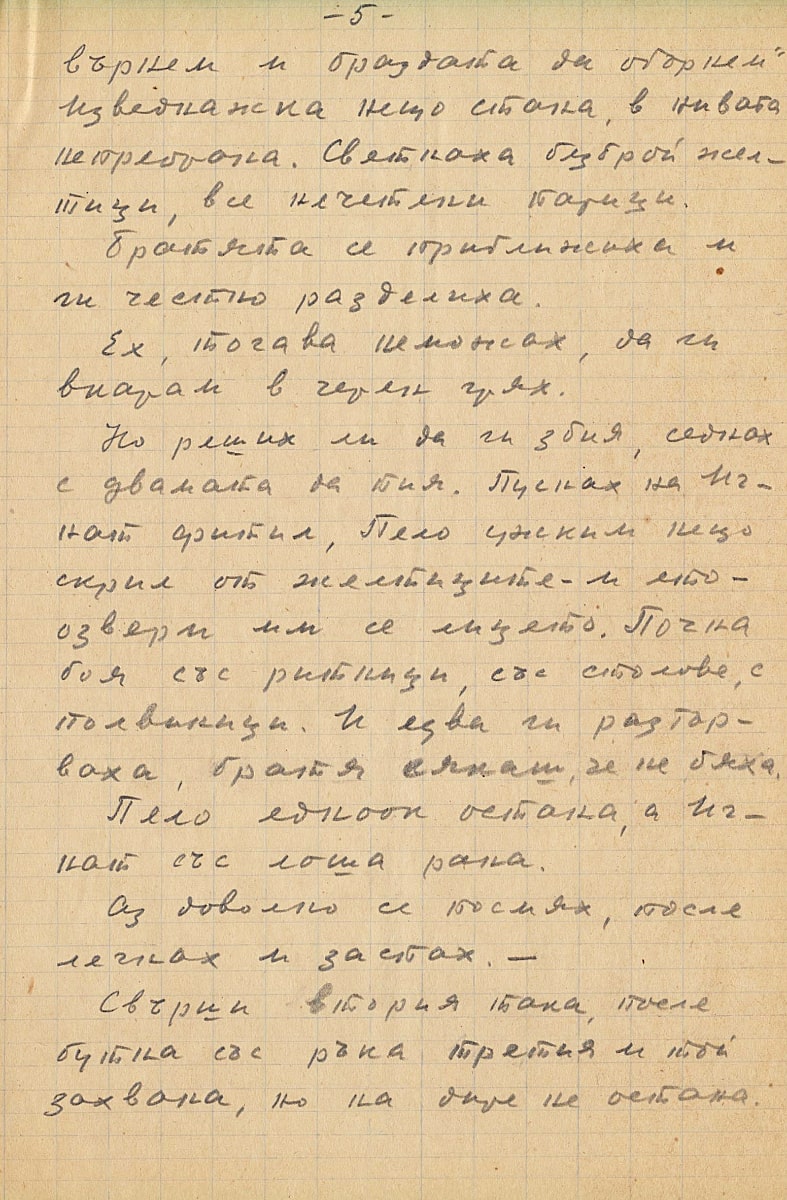 -5-
върнем и браздата да обърнем"
Изведнажка нещо стана, в нивата
непребрана. Светнаха безброй жел-
тици, все нечетени парици.
Братята се приближиха и
ги честно разделиха.
Ех, тогава неможах, да ги
вкарам в черен грях.
Но реших ли да ги збия, седнах
с двамата да пия. Пуснах на Иг-
нат фитил, Пело ужким нещо
скрил от желтиците - и ето -
озвери им се лицето. Почна
боя със ритници, със столове, с
полвиници. И едва ги разтър-
ваха, братя сякаш, че не бяха.
Пело еднооок остана, а Иг-
нат със лоша рана.
Аз доволно се посмях, после
легнах и заспах. —
Свърши втория така, после
бутна със ръка третия и той
захвана, но на дире не остана.